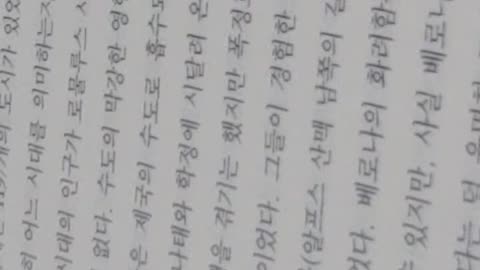 도시가 있었
어느 시대를 의미하는지
시대의 인구가 로물루스 시
없다. 수도의 막강한 영향
은 제국의 수도로 흡수되
나태와 학정에 시달려 온
을 겪기는 했지만 폭정
이었다. 그들이 경험한
(알프스 산맥 남쪽의 갈
었다. 베로나의 화려함
있지만, 사실 베로나
다는 덜